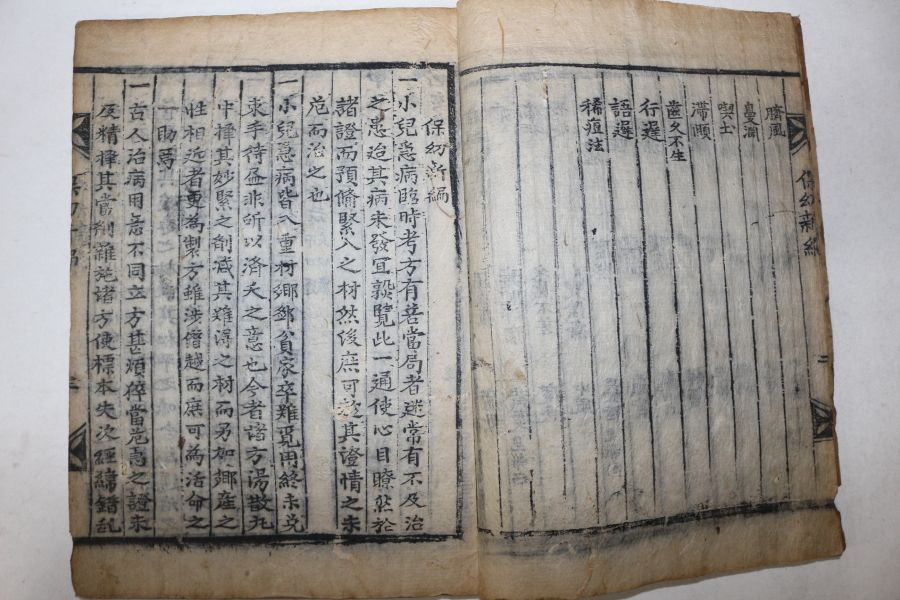 保幼新編
二
臍風
喫土
滯頥
齒久不生
行遲
語遲
稀痘法
保幼新編
一小兒急病臨時考方有若當局者迷常有不及治
之患迨其病未發冝熟覽此一通使心目瞭然於
諸證而預俻緊入之材然後庶可於其證情之未
危而治之也
一小兒急病皆入重材鄕鄙貧家卒難覓用終未免
束手待尽非所以済夭之意也今者諸方湯散丸
中擇其妙緊之剤减其難得之材而另加鄕産之
性相近者更為製方雖涉僣越而庶可為活命之
一助焉
一古人治病用意不同立方甚煩猝當危急之證未
及精擇其當剤羅施諸方使標本失次經緯錯乱
三